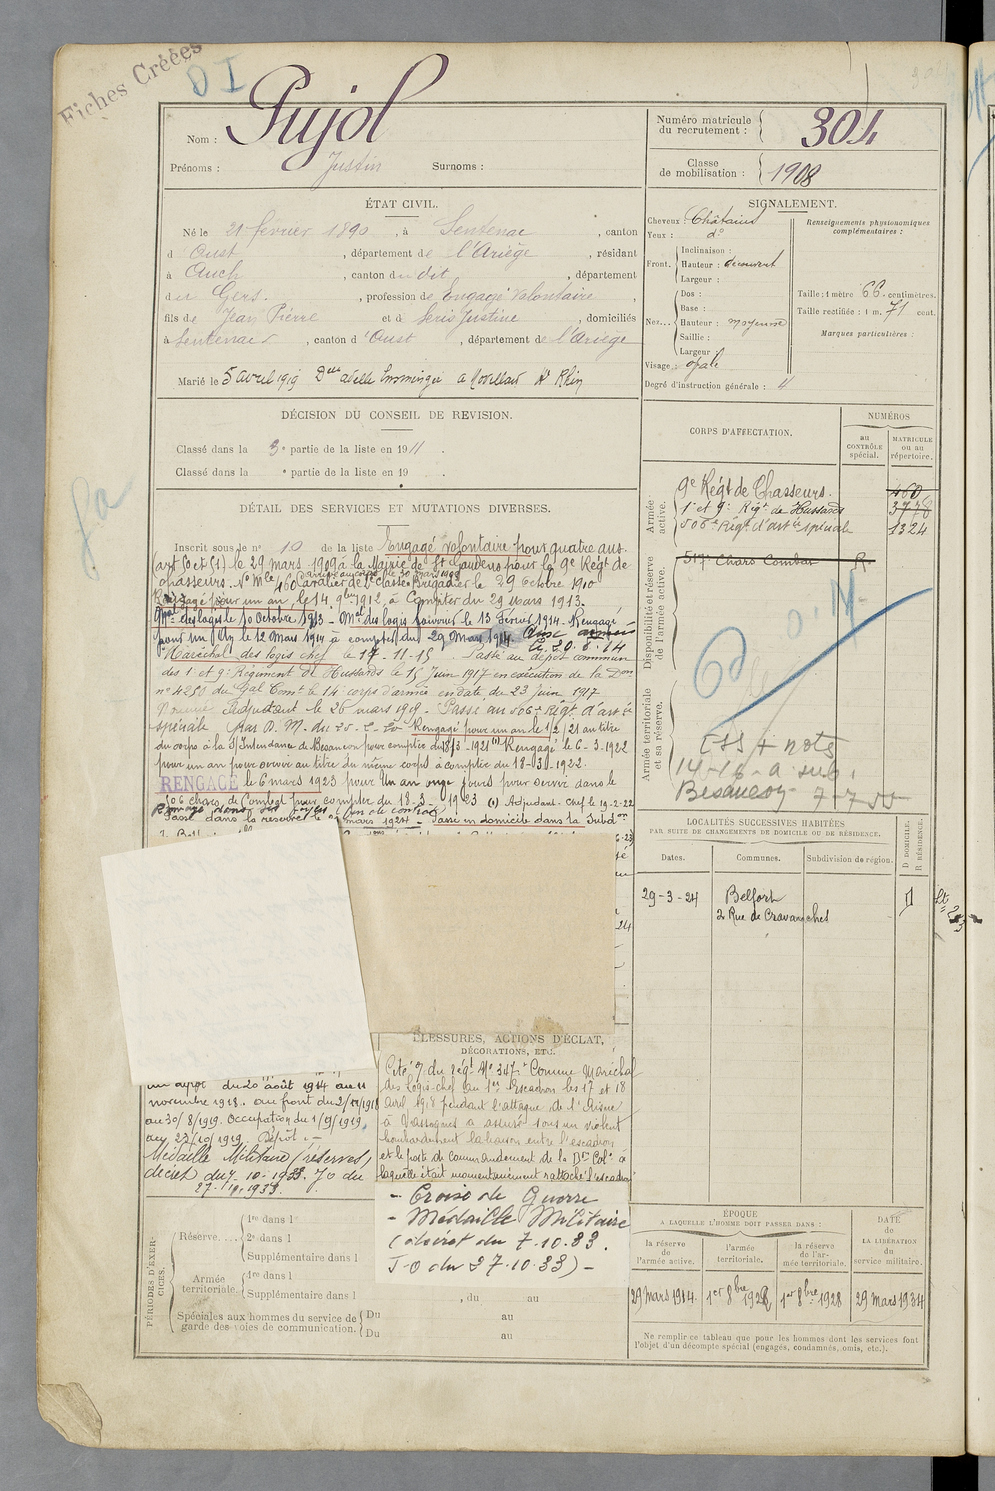 Fiches Créées
DI
Nom : Pujol
Prénoms : Justin Surnoms :
Numéro matricule du recrutement : 304
Classe de mobilisation : 1908
ÉTAT CIVIL.
Né le 21 février 1890, à Sentenac, canton
d'Oust, département de l'Ariège, résidant
à Auch, canton du dit, département
du Gers, profession de Engagé Volontaire,
fils de Jean Pierre et de Seris Justine, domiciliés
à Sentenac, canton d'Oust, département de l'Ariège
Marié le 5 avril 1919 Delle
SIGNALEMENT.
Cheveux : Châtains
Yeux : do
Front.
Inclinaison :
Hauteur : découvert
Largeur :
Nez...
Dos :
Base :
Hauteur : moyenne
Saillie :
Largeur :
Visage : ovale
Degré d'instruction générale :
Renseignements physionomiques complémentaires :
Taille : 1 mètre 66 centimètres.
Taille rectifiée : 1 m. 71 cent.
Marques particulières :
DÉCISION DU CONSEIL DE REVISION.
Classé dans la 3e partie de la liste en 1911.
Classé dans la e partie de la liste en 19 .
CORPS D'AFFECTATION.
NUMÉROS
au CONTRÔLE spécial.
MATRICULE ou au répertoire.
Armée active.
9e Régt de Chasseurs. 460
1er et 9e Régt de Hussards 3778
506e Régt d'artie spéciale 1324
Disponibilité et réserve de l'armée active.
517e Chars Combat R.
Armée territoriale et sa réserve.
ESS + nota
14-18-a sub.
Besançon 7-7-55
DÉTAIL DES SERVICES ET MUTATIONS DIVERSES.
Inscrit sous le no 10 de la liste Engagé volontaire pour quatre ans.
(art. 50 et 51) le 29 mars 1909 à la Mairie de St Gaudens pour le 9e Régt de
chasseurs. No Mle 460 Cavalier de 2e Classe Brigadier le 29 octobre 1910
Rengagé pour un an, le 14 9bre 1912, à compter du 29 mars 1913.
Mal des logis le 10 Octobre 1913 - Mal des logis fourrier le 13 Février 1914. Rengagé
pour un an le 12 Mars 1914 à compter du 29 Mars 1914.
Maréchal des logis chef le 17-11-15. Passé au dépôt commun
des 1er et 9e Régiment de Hussards le 15 Juin 1917 en exécution de la Don
no 4250 du Gal Comt le 14e corps d'armée en date du 23 Juin 1917
Nommé Adjudant le 26 mars 1919. Passé au 506e Régt d'artie
spéciale Rengagé pour un an le 1/2/21 au titre
du corps à la S/Intendance de Besançon pour compter du 18/3-1921 (1) Rengagé le 6-3-1922
pour un an pour servir au titre du même corps à compter du 18-3-1922.
RENGAGÉ le 6 mars 1923 pour Un an onze jours pour servir dans le
506 chars de Combat pour compter du 18-3-1923 (1) Adjudant-Chef le 19-2-22
Passé dans la réserve le mars 1924 - Passé en domicile dans la Subdon
LOCALITÉS SUCCESSIVES HABITÉES
PAR SUITE DE CHANGEMENTS DE DOMICILE OU DE RÉSIDENCE.
Dates. Communes. Subdivision de région. D DOMICILE. R RÉSIDENCE.
29-3-24 Belfort D
2 Rue de Cravanches
BLESSURES, ACTIONS D'ÉCLAT,
DÉCORATIONS, ETC.
Cité O. du régt No 347 "Comme Maréchal
des Logis-chef au 1er Escadron les 17 et 18
avril 1918 pendant l'attaque de l'Aisne
à Vassognes a assuré sous un violent
bombardement la liaison entre l'escadron
et le poste de commandement de la Don Colo à
laquelle était momentanément rattaché l'escadron
- Croix de Guerre
- Médaille Militaire
(décret du 7.10.33.
J-O du 27.10.33) -
un dépôt du 20 août 1914 au 11
novembre 1918. au front du
au 30/8/1919. Occupation du 1/9/1919
au 27/10/1919. Dépôt.
Médaille Militaire (réserves)
décret du 7-10-1933. JO du
27-10-1933.
PÉRIODES D'EXERCICES.
Réserve....
1re dans l
2e dans l
Supplémentaire dans l
Armée territoriale.
1re dans l
Supplémentaire dans l , du au
Spéciales aux hommes du service de garde des voies de communication.
Du au
Du au
ÉPOQUE
A LAQUELLE L'HOMME DOIT PASSER DANS :
la réserve de l'armée active.
l'armée territoriale.
la réserve de l'armée territoriale.
DATE de LA LIBÉRATION du service militaire.
29 mars 1914. 1er 8bre 1928 1er 8bre 1928 29 mars 1934
Ne remplir ce tableau que pour les hommes dont les services font
l'objet d'un décompte spécial (engagés, condamnés, omis, etc.).